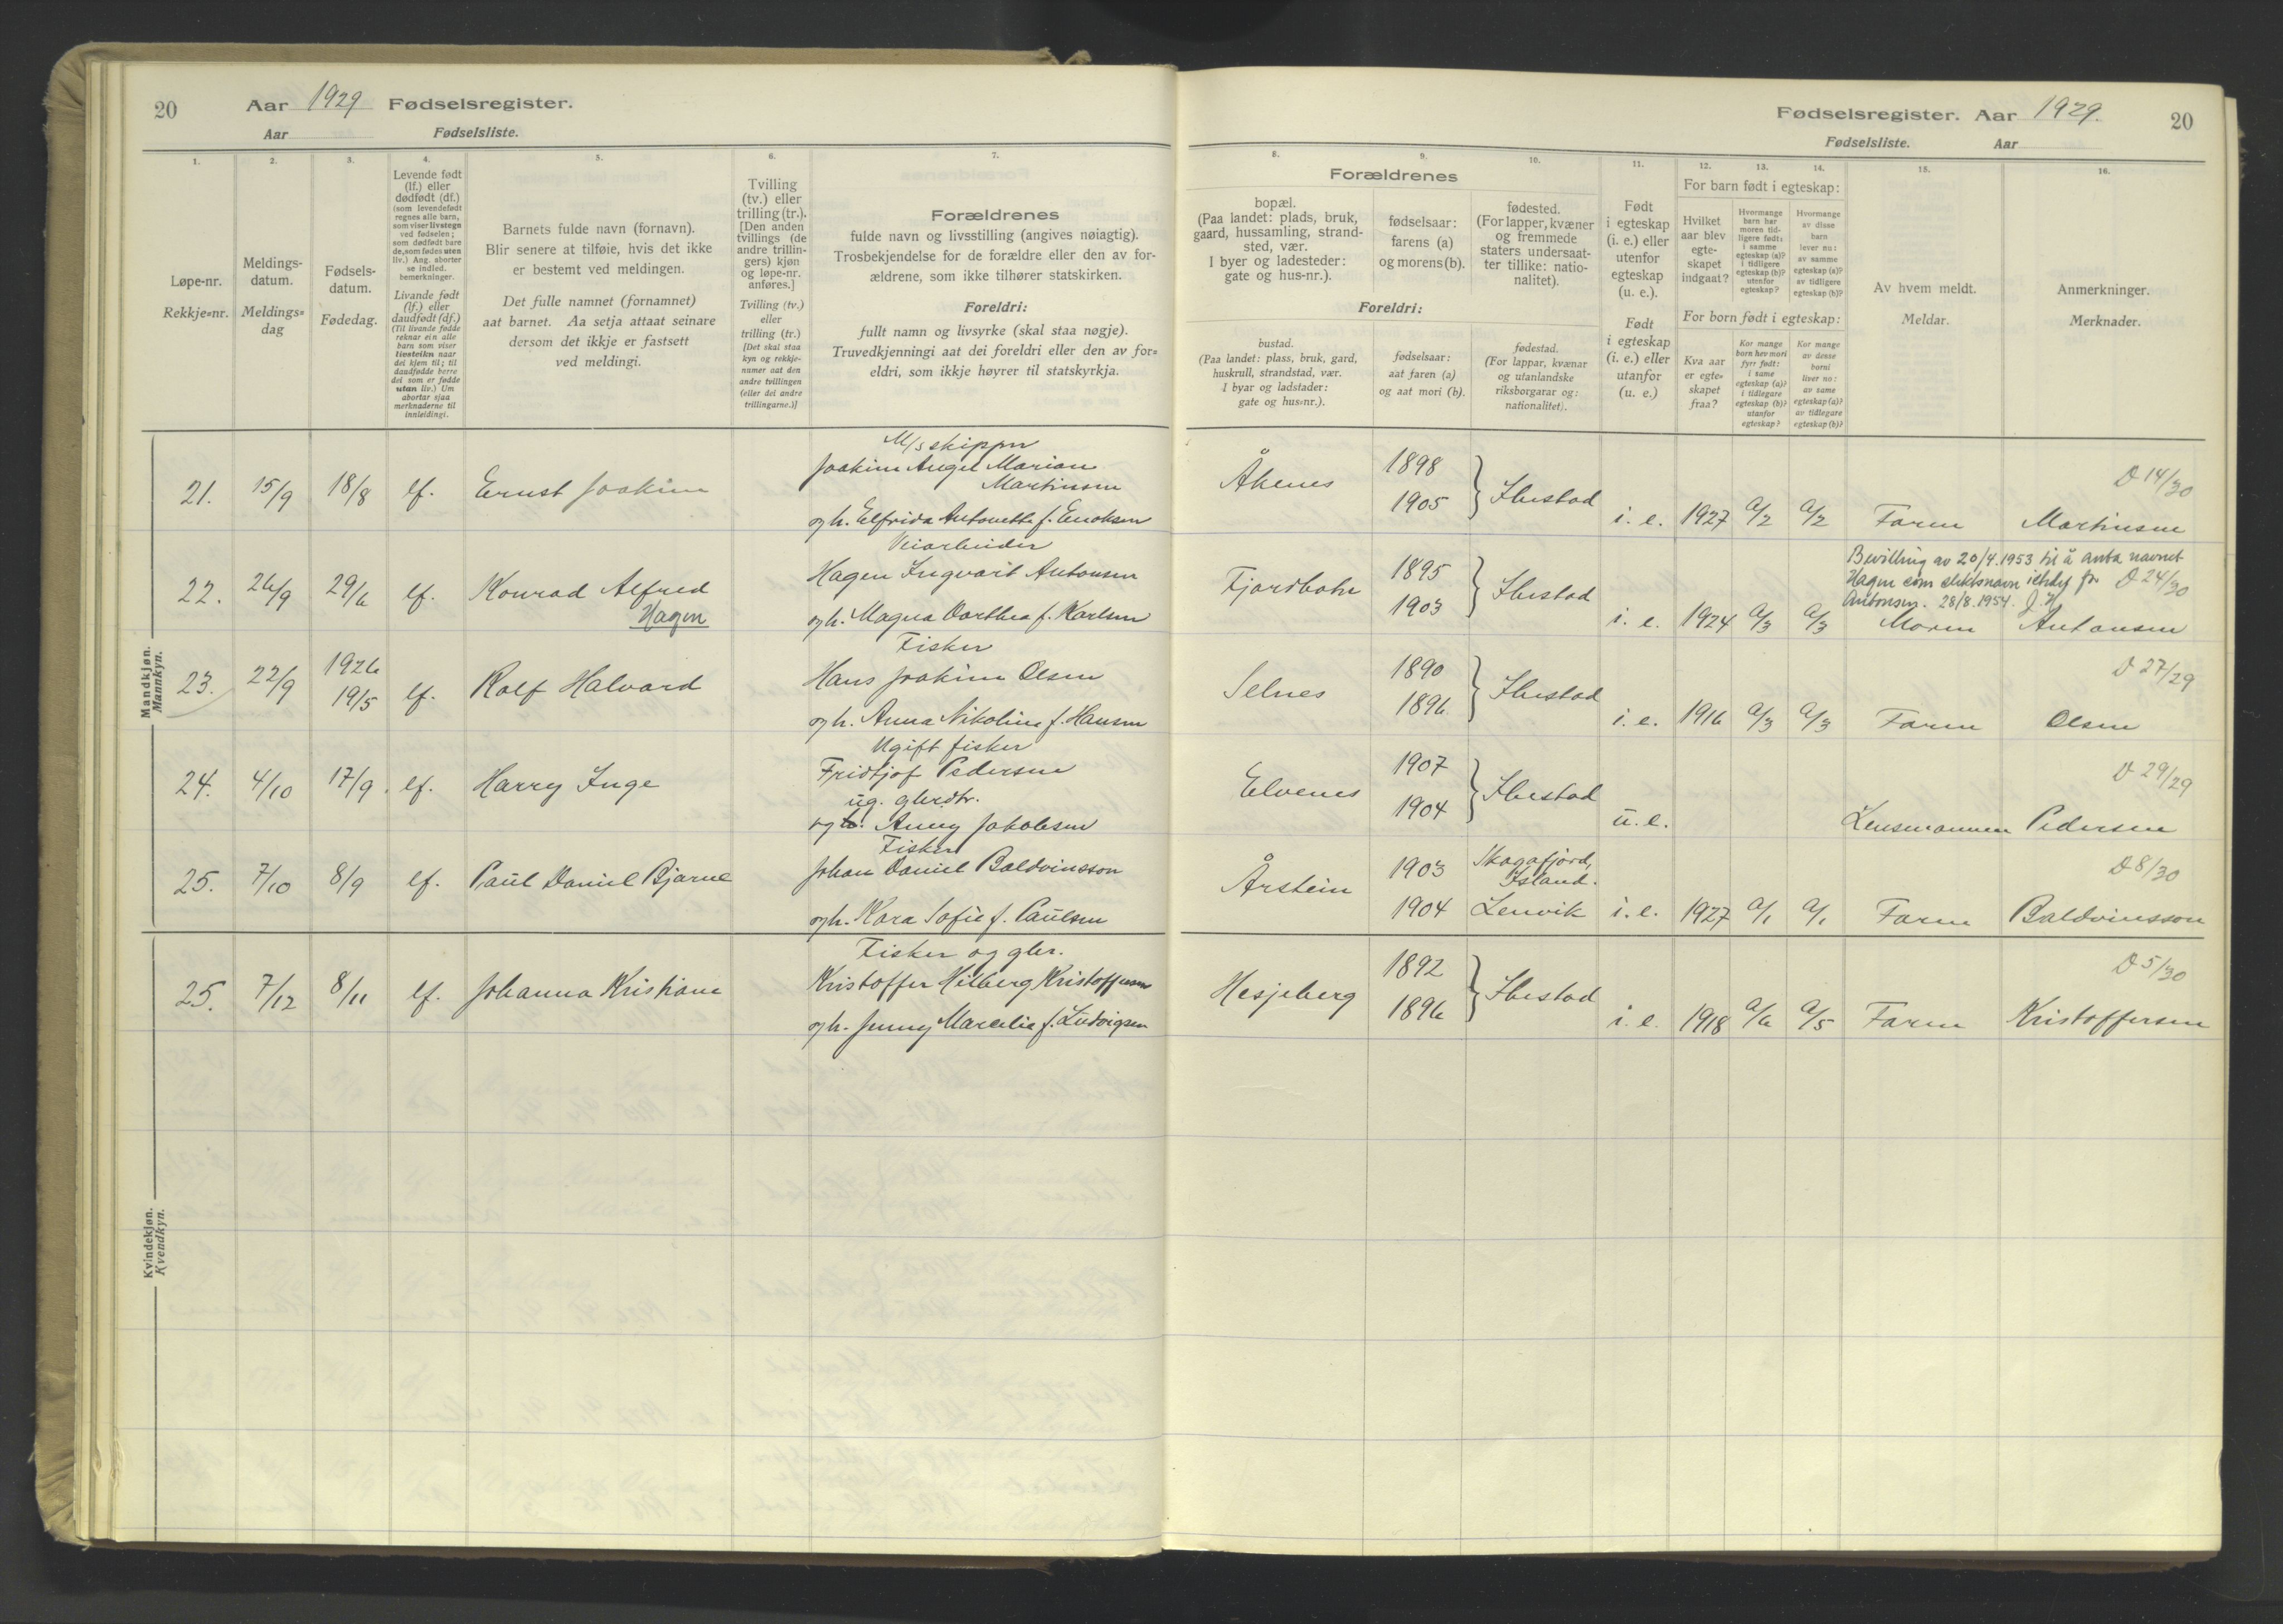 20 Aar 1929 Fødselsregister.
Aar Fødselsliste.
Fødselsregister. Aar 1929. 20
Fødselsliste. Aar
1.
Løpe-nr.
Rekkje=nr.
2.
Meldings-
datum.
Meldings=
dag
3.
Fødsels-
datum.
Fødedag.
4.
Levende født
(lf.) eller
dødfødt (df.)
(som levendefødt
regnes alle barn,
som viser livstegn
ved fødselen;
som dødfødt bare
de, som fødes uten
liv.) Ang. aborter
se indled.
bemerkninger.
Livande født
(lf.) eller
daudfødt (df.)
(Til livande fødde
reknar ein alle
barn som viser
livsteikn naar
dei kjem til; til
daudfødde berre
dei som er fødde
utan liv.) Um
abortar sjaa
merknaderne til
innleidingi.
5.
Barnets fulde navn (fornavn).
Blir senere at tilføie, hvis det ikke
er bestemt ved meldingen.
Det fulle namnet (fornamnet)
aat barnet. Aa setja attaat seinare
dersom det ikkje er fastsett
ved meldingi.
6.
Tvilling
(tv.) eller
trilling (tr.).
[Den anden
tvillings (de
andre trillin-
gers) kjøn
og løpe-nr.
anføres.]
Tvilling (tv.)
eller
trilling (tr.)
[Det skal staa
kyn og rekkje-
numer aat den
andre tvillingen
(eller dei andre
trillingarne.)]
7.
Forældrenes
fulde navn og livsstilling (angives nøiagtig).
Trosbekjendelse for de forældre eller den av for-
ældrene, som ikke tilhører statskirken.
Foreldri:
fullt namn og livsyrke (skal staa nøgje).
Truvedkjenningi aat dei foreldri eller den av for=
eldri, som ikkje høyrer til statskyrkja.
Forældrenes
8.
bopæl.
(Paa landet: plads, bruk,
gaard, hussamling, strand-
sted, vær.
I byer og ladesteder:
gate og hus-nr.).
9.
fødselsaar:
farens (a)
og morens (b).
10.
fødested.
(For lapper, kvæner
og fremmede
staters undersaat-
ter tillike: natio-
nalitet).
Foreldri:
bustad.
(Paa landet: plass, bruk, gard,
huskrull, strandstad, vær.
I byar og ladstader:
gate og hus=nr.).
fødselsaar:
aat faren (a)
og aat mori (b).
fødestad.
(For lappar, kvænar
og utanlandske
riksborgarar og:
nationalitet).
11.
Født
i egteskap
(i. e.) eller
utenfor
egteskap
(u. e.).
Født
i egteskap
(i. e.) eller
utanfor
egteskap
(u. e.)
12. 13. 14.
For barn født i egteskap:
Hvilket
aar blev
egte-
skapet
indgaat?
Hvormange
barn har
moren tid-
ligere født:
i samme
egteskap (a)?
i tidligere
egteskap (b)?
utenfor
egteskap?
Hvormange
av disse
barn
lever nu:
av samme
egteskap (a)?
av tidligere
egteskap (b)?
For born født i egteskap:
Kva aar
er egte=
skapet
fraa?
Kor mange
born hev mori
fyrr født:
i same
egteskap (a)?
i tidlegare
egteskap (b)?
utanfor
egteskap?
Kor mange
av desse
borni
liver no:
av same
egteskap (a)?
av tidlegare
egteskap (b)?
15.
Av hvem meldt.
Meldar.
16.
Anmerkninger.
Merknader.
Mandkjøn.
Mannkyn.
M/s skipper
21. 15/9 18/8 lf. Ernst Joakim Joakim Angel Marian Martinsen
og h. Elfrida Antonette f. Enoksen
Åkenes 1898 1905 Ibestad i. e. 1927 a/2 a/2 Faren Martinsen D 14/30
Veiarbeider
22. 26/9 29/6 lf. Konrad Alfred Hagen Hagen Ingvart Antonsen
og h. Magna Dorthea f. Karlsen
Fjordbotn 1895 1903 Ibestad i. e. 1924 a/3 a/3 Moren Antonsen
Bevilling av 20/4.1953 til å anta navnet
Hagen som slektsnavn istedf for D 24/30
Antonsen. 28/8.1954. J.H
Fisker
23. 22/9 1926 19/5 lf. Rolf Halvard Hans Joakim Olsen
og h. Anna Nikolina f. Hansen
Selnes 1890 1896 Ibestad i. e. 1916 a/3 a/3 Faren Olsen D 27/29
Ugift fisker
24. 4/10 17/9. lf. Harry Inge Fridtjof Pedersen
ug. gbrdtr.
og h. Anny Jakobsen
Elvenes 1907 1904 Ibestad u. e. Lensmannen Pedersen D 29/29
Fisker
25. 7/10 8/9 lf. Paul Daniel Bjarne Johan Daniel Baldvinsson
og h. Kara Sofie f. Paulsen
Årstein 1903 Skagafjord, Island.
1904 Lenvik i. e. 1927 a/1 a/1 Faren Baldvinsson D 8/30
Kvindekjøn.
Kvendkyn.
Fisker og gbr.
25. 7/12 8/11 lf. Johanna Kristiane Kristoffer Hilberg Kristoffersen
og h. Jenny Marcelie f. Ludvigsen
Hesjeberg 1892 1896 Ibestad i. e. 1918 a/6 a/5 Faren Kristoffersen D 5/30